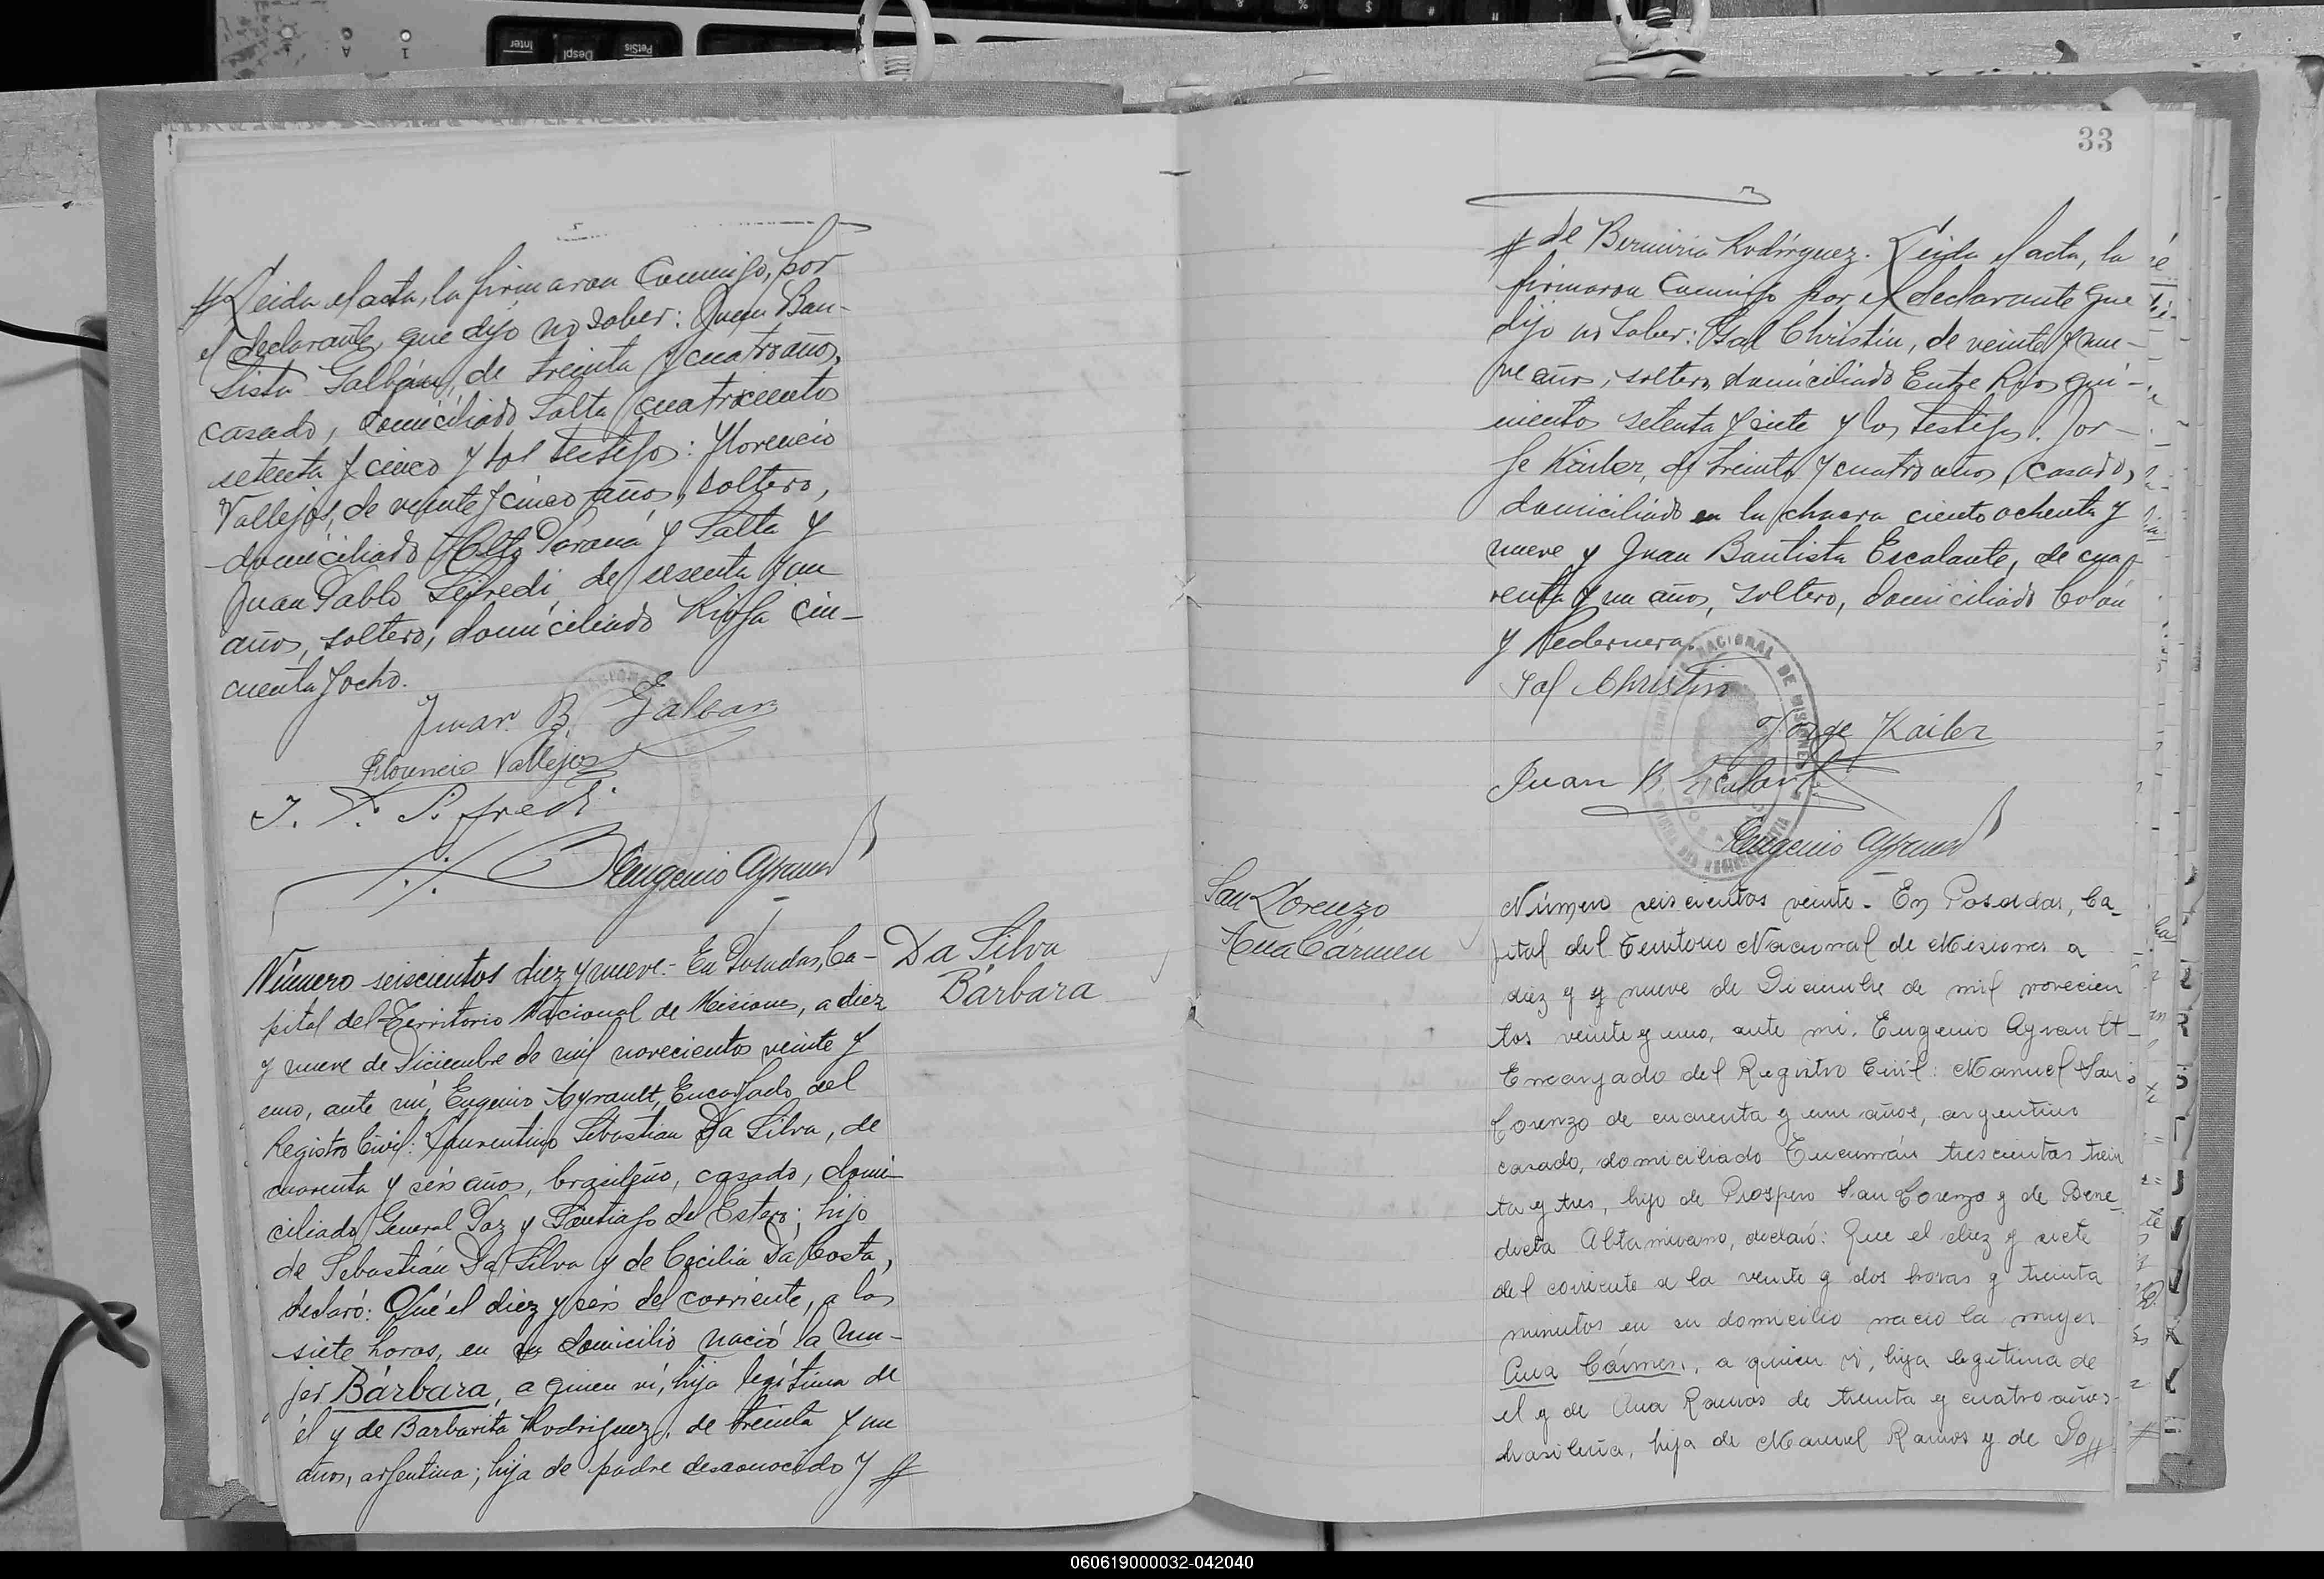 # Leida el acta, la firmaron conmigo, por
el declarante, que dijo no saber: Juan Bau-
tista Galbán, de treinta y cuatro años,
casado, domiciliado Salta cuatrocientos
setenta y cinco y los testigos: Florencio
Vallejos, de veinte y cinco años, soltero,
domiciliado Alto Paraná y Salta y
Juan Pablo Sifredi de sesenta y un
años, soltero, domiciliado Rioja cin-
cuenta y ocho.
Juan B. Galban
Florencio Vallejos
J. P. Sifredi
Eugenio Ayrault
Número seiscientos diez y nueve.- En Posadas, Ca-
pital del Territorio Nacional de Misiones, a diez
y nueve de Diciembre de mil novecientos veinte y
uno, ante mí, Eugenio Ayrault, Encargado del
Registro Civil: Laurentino Sebastian Da Silva, de
cuarenta y seis años, brasileño, casado, domi-
ciliado General Paz y Santiago del Estero; hijo
de Sebastián Da Silva y de Cecilia Da Costa,
declaró: Qué el diez y seis del corriente, a las
siete horas, en su domicilio nació la mu-
jer Bárbara, a quien ví, hija legítima de
él y de Barbarita Rodriguez, de treinta y un
años, argentina; hija de padre desconocido y #
Da Silva
Bárbara
33
# de Rodríguez. Leida el acta, la
firmaron conmigo por el declarante que
dijo no saber: Christin, de veinte y nue-
ve años, soltero, domiciliado Entre Rios qui-
nientos setenta y siete y los testigos: Jor-
ge Kailer, de treinta y cuatro años, casado,
domiciliado en la chacra ciento ochenta y
nueve y Juan Bautista Escalante, de cua-
renta y un años, soltero, domiciliado Colón
y Pedernera.
Christin
Jorge Kailer
Juan B. Escalante
Eugenio Ayrault
San Lorenzo
Ana Cármen
Número seiscientos veinte.- En Posadas, Ca-
pital del Territorio Nacional de Misiones a
diez y y nueve de Diciembre de mil novecien
tos veinte y uno, ante mi. Eugenio Ayrault-
Encargado del Registro Civil: Manuel San
Lorenzo de cuarenta y un años, argentino
casado, domiciliado Tucumán trescientos trein
ta y tres, hijo de Prospero San Lorenzo y de Bene-
dicta Altamirano, declaró: Que el diez y siete
del corriente a la veinte y dos horas y treinta
minutos en su domicilio nació la mujer
Ana Cármen, a quien ví, hija legitima de
el y de Ana Ramos de treinta y cuatro años-
brasileña, hija de Manuel Ramos y de Do #
060619000032-042040